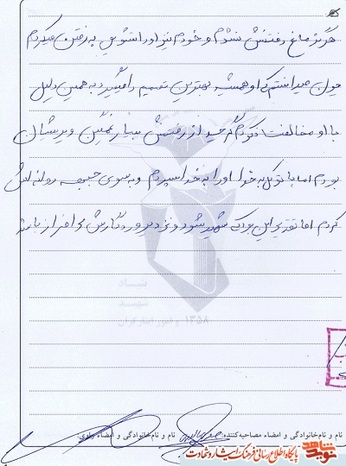 هرگز مانع رفتنش نشوم و خودم نیز او را تشویق به رفتن میکردم
چون میدانستم که او همیشه بهترین تصمیم را میگیرد به همین دلیل
با او مخالفت نکردم گرچه از رفتنش بسیار غمگین و پریشان
بودم اما با توکل به خدا او را به خدا سپردم و به سوی جبهه روانه اش
کردم اما تقدیر این بود که شهید شود و نزد پروردگارش سرافراز باشد
بنیاد
شهید
۱۳۵۸
نام و نام‌خانوادگی و امضاء مصاحبه‌کننده:
نام و نام‌خانوادگی و امضاء راوی:
نوید شاهد
پایگاه اطلاع رسانی فرهنگ ایثار و شهادت